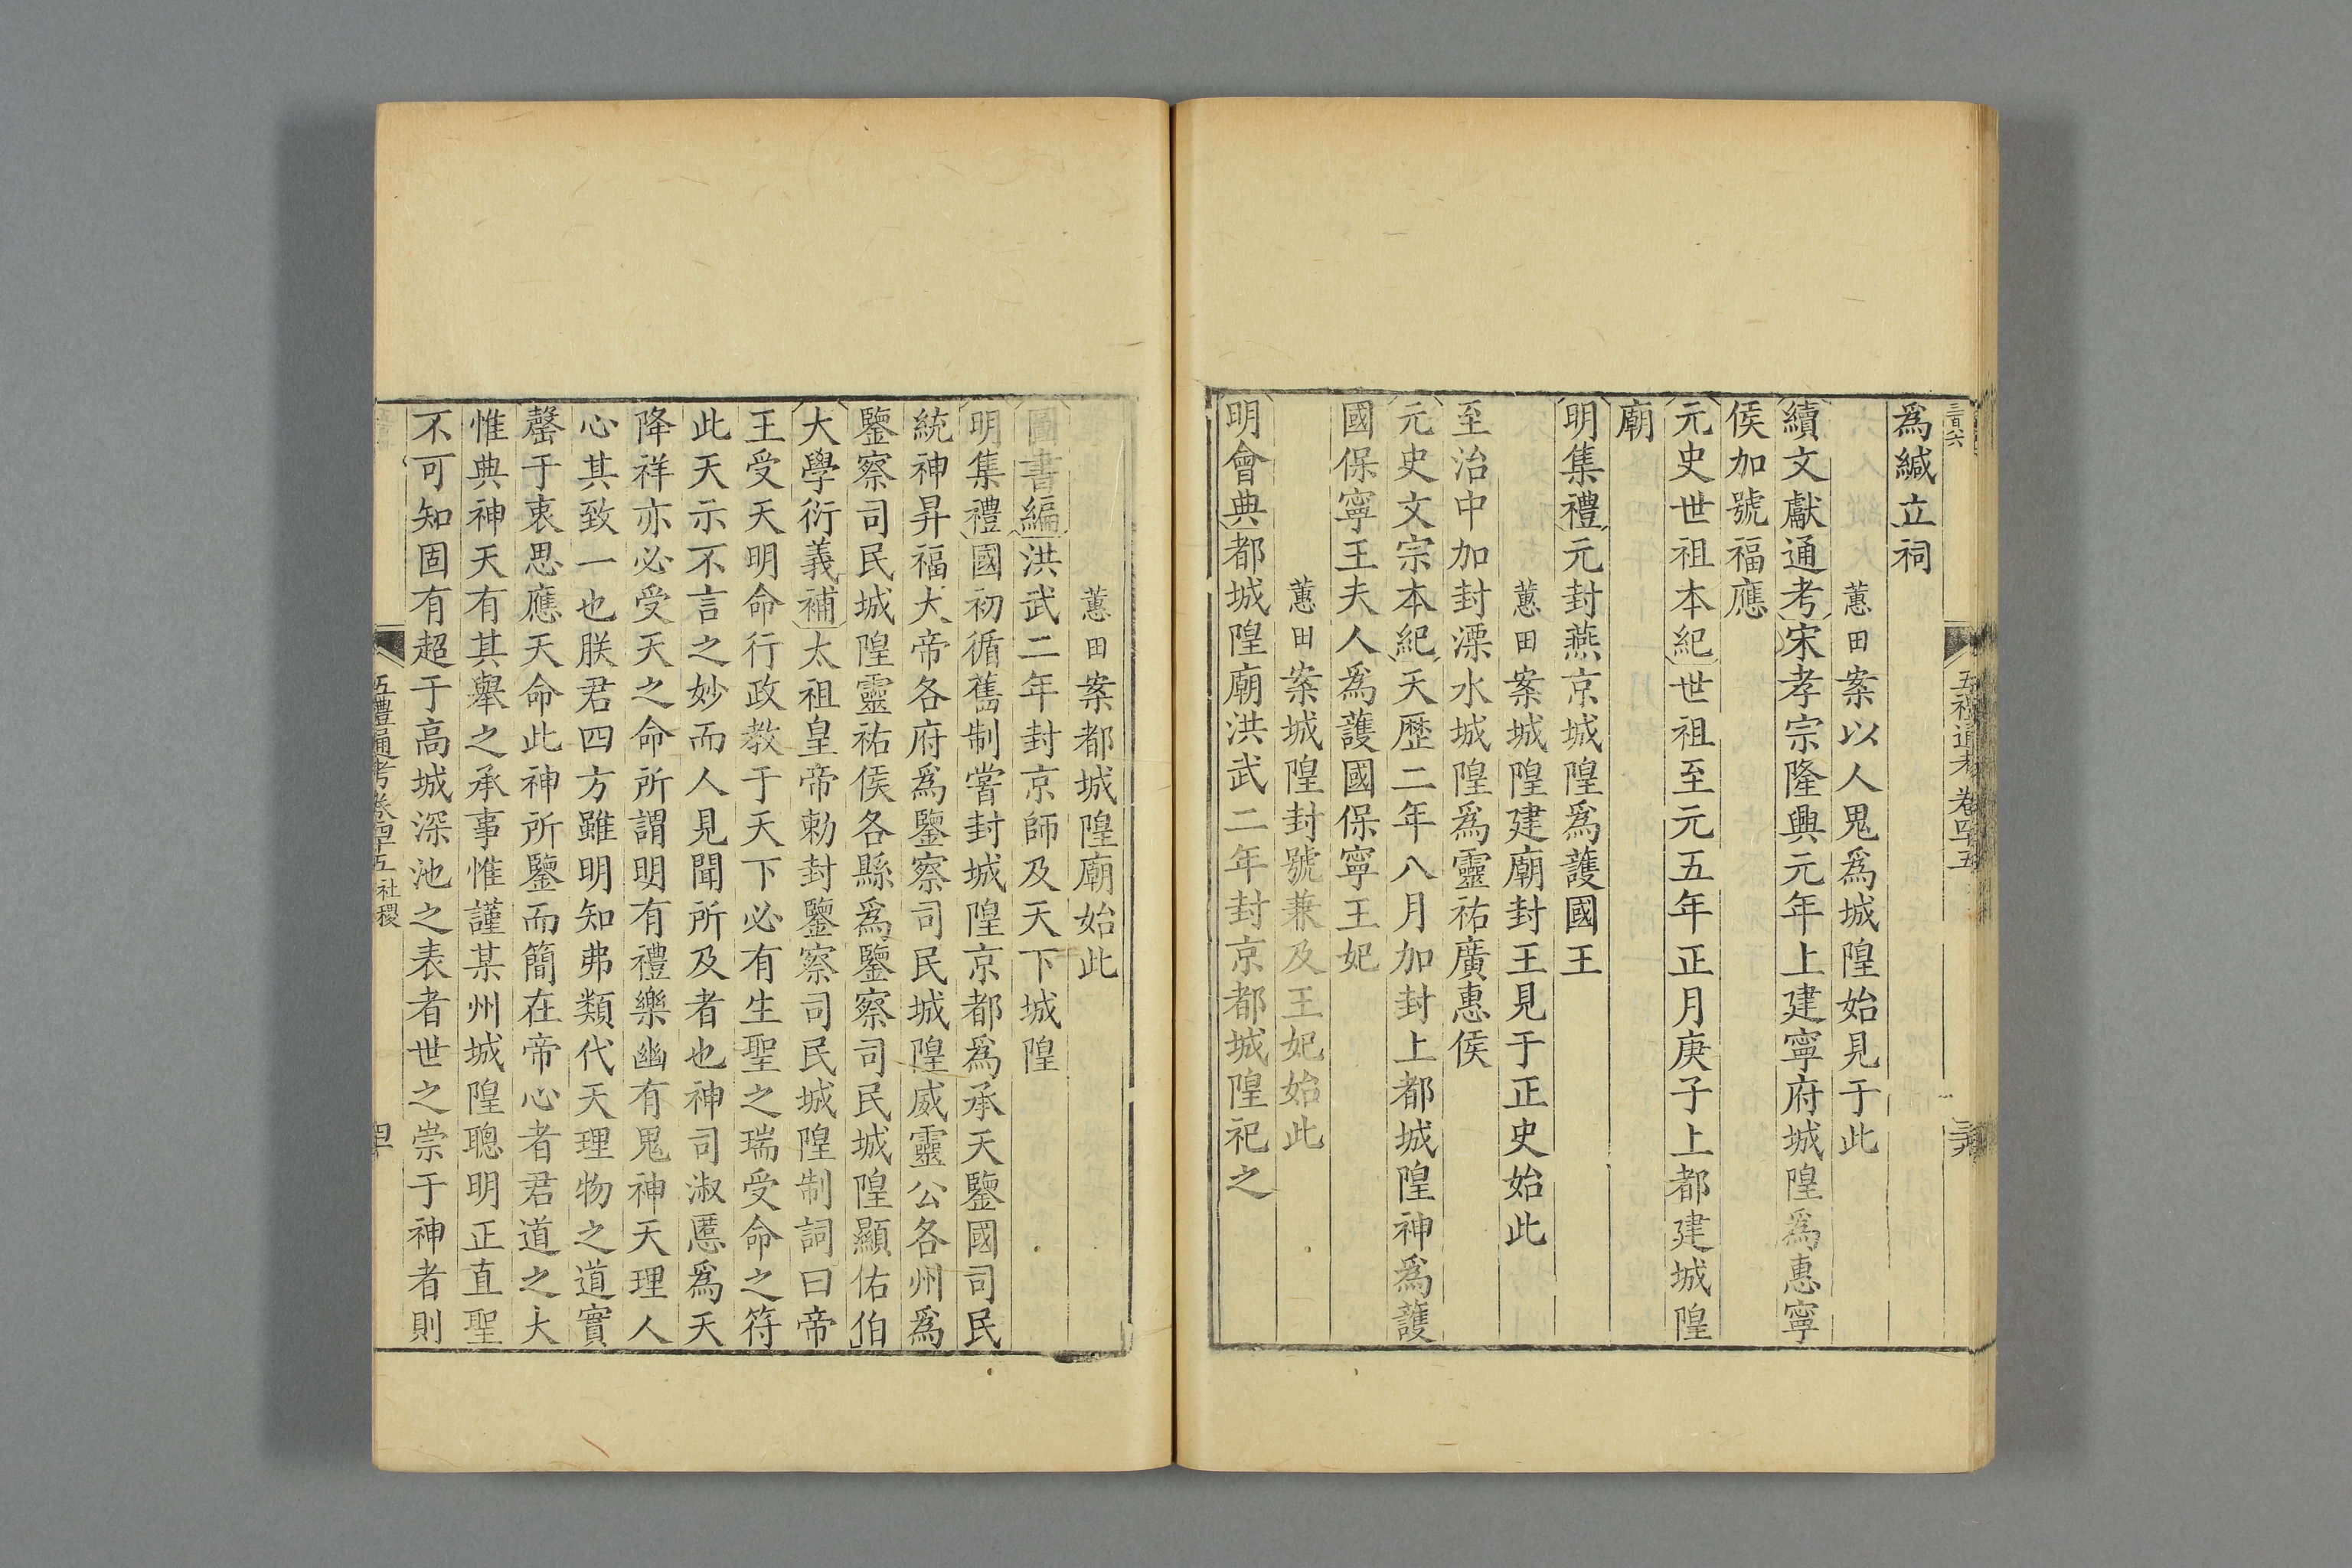 五禮通考卷四十五
爲緘立祠
蕙田案以人鬼爲城隍始見于此
續文獻通考宋孝宗隆興元年上建寧府城隍爲惠寧
侯加號福應
元史世祖本紀世祖至元五年正月庚子上都建城隍
廟
明集禮元封燕京城隍爲護國王
蕙田案城隍建廟封王見于正史始此
至治中加封溧水城隍爲靈祐廣惠侯
元史文宗本紀天歷二年八月加封上都城隍神爲護
國保寧王夫人爲護國保寧王妃
蕙田案城隍封號兼及王妃始此
明會典都城隍廟洪武二年封京都城隍祀之
蕙田案都城隍廟始此
圖書編洪武二年封京師及天下城隍
明集禮國初循舊制嘗封城隍京都爲承天鑒國司民
統神昇福大帝各府爲鑒察司民城隍威靈公各州爲
鑒察司民城隍靈祐侯各縣爲鑒察司民城隍顯佑伯
大學衍義補太祖皇帝勅封鑒察司民城隍制詞曰帝
王受天明命行政教于天下必有生聖之瑞受命之符
此天示不言之妙而人見聞所及者也神司淑慝爲天
降祥亦必受天之命所謂明有禮樂幽有鬼神天理人
心其致一也朕君四方雖明知弗類代天理物之道實
罄于衷思應天命此神所鑒而簡在帝心者君道之大
惟典神天有其舉之承事惟謹某州城隍聰明正直聖
不可知固有超于高城深池之表者世之崇于神者則
五禮通考卷四十五 社稷